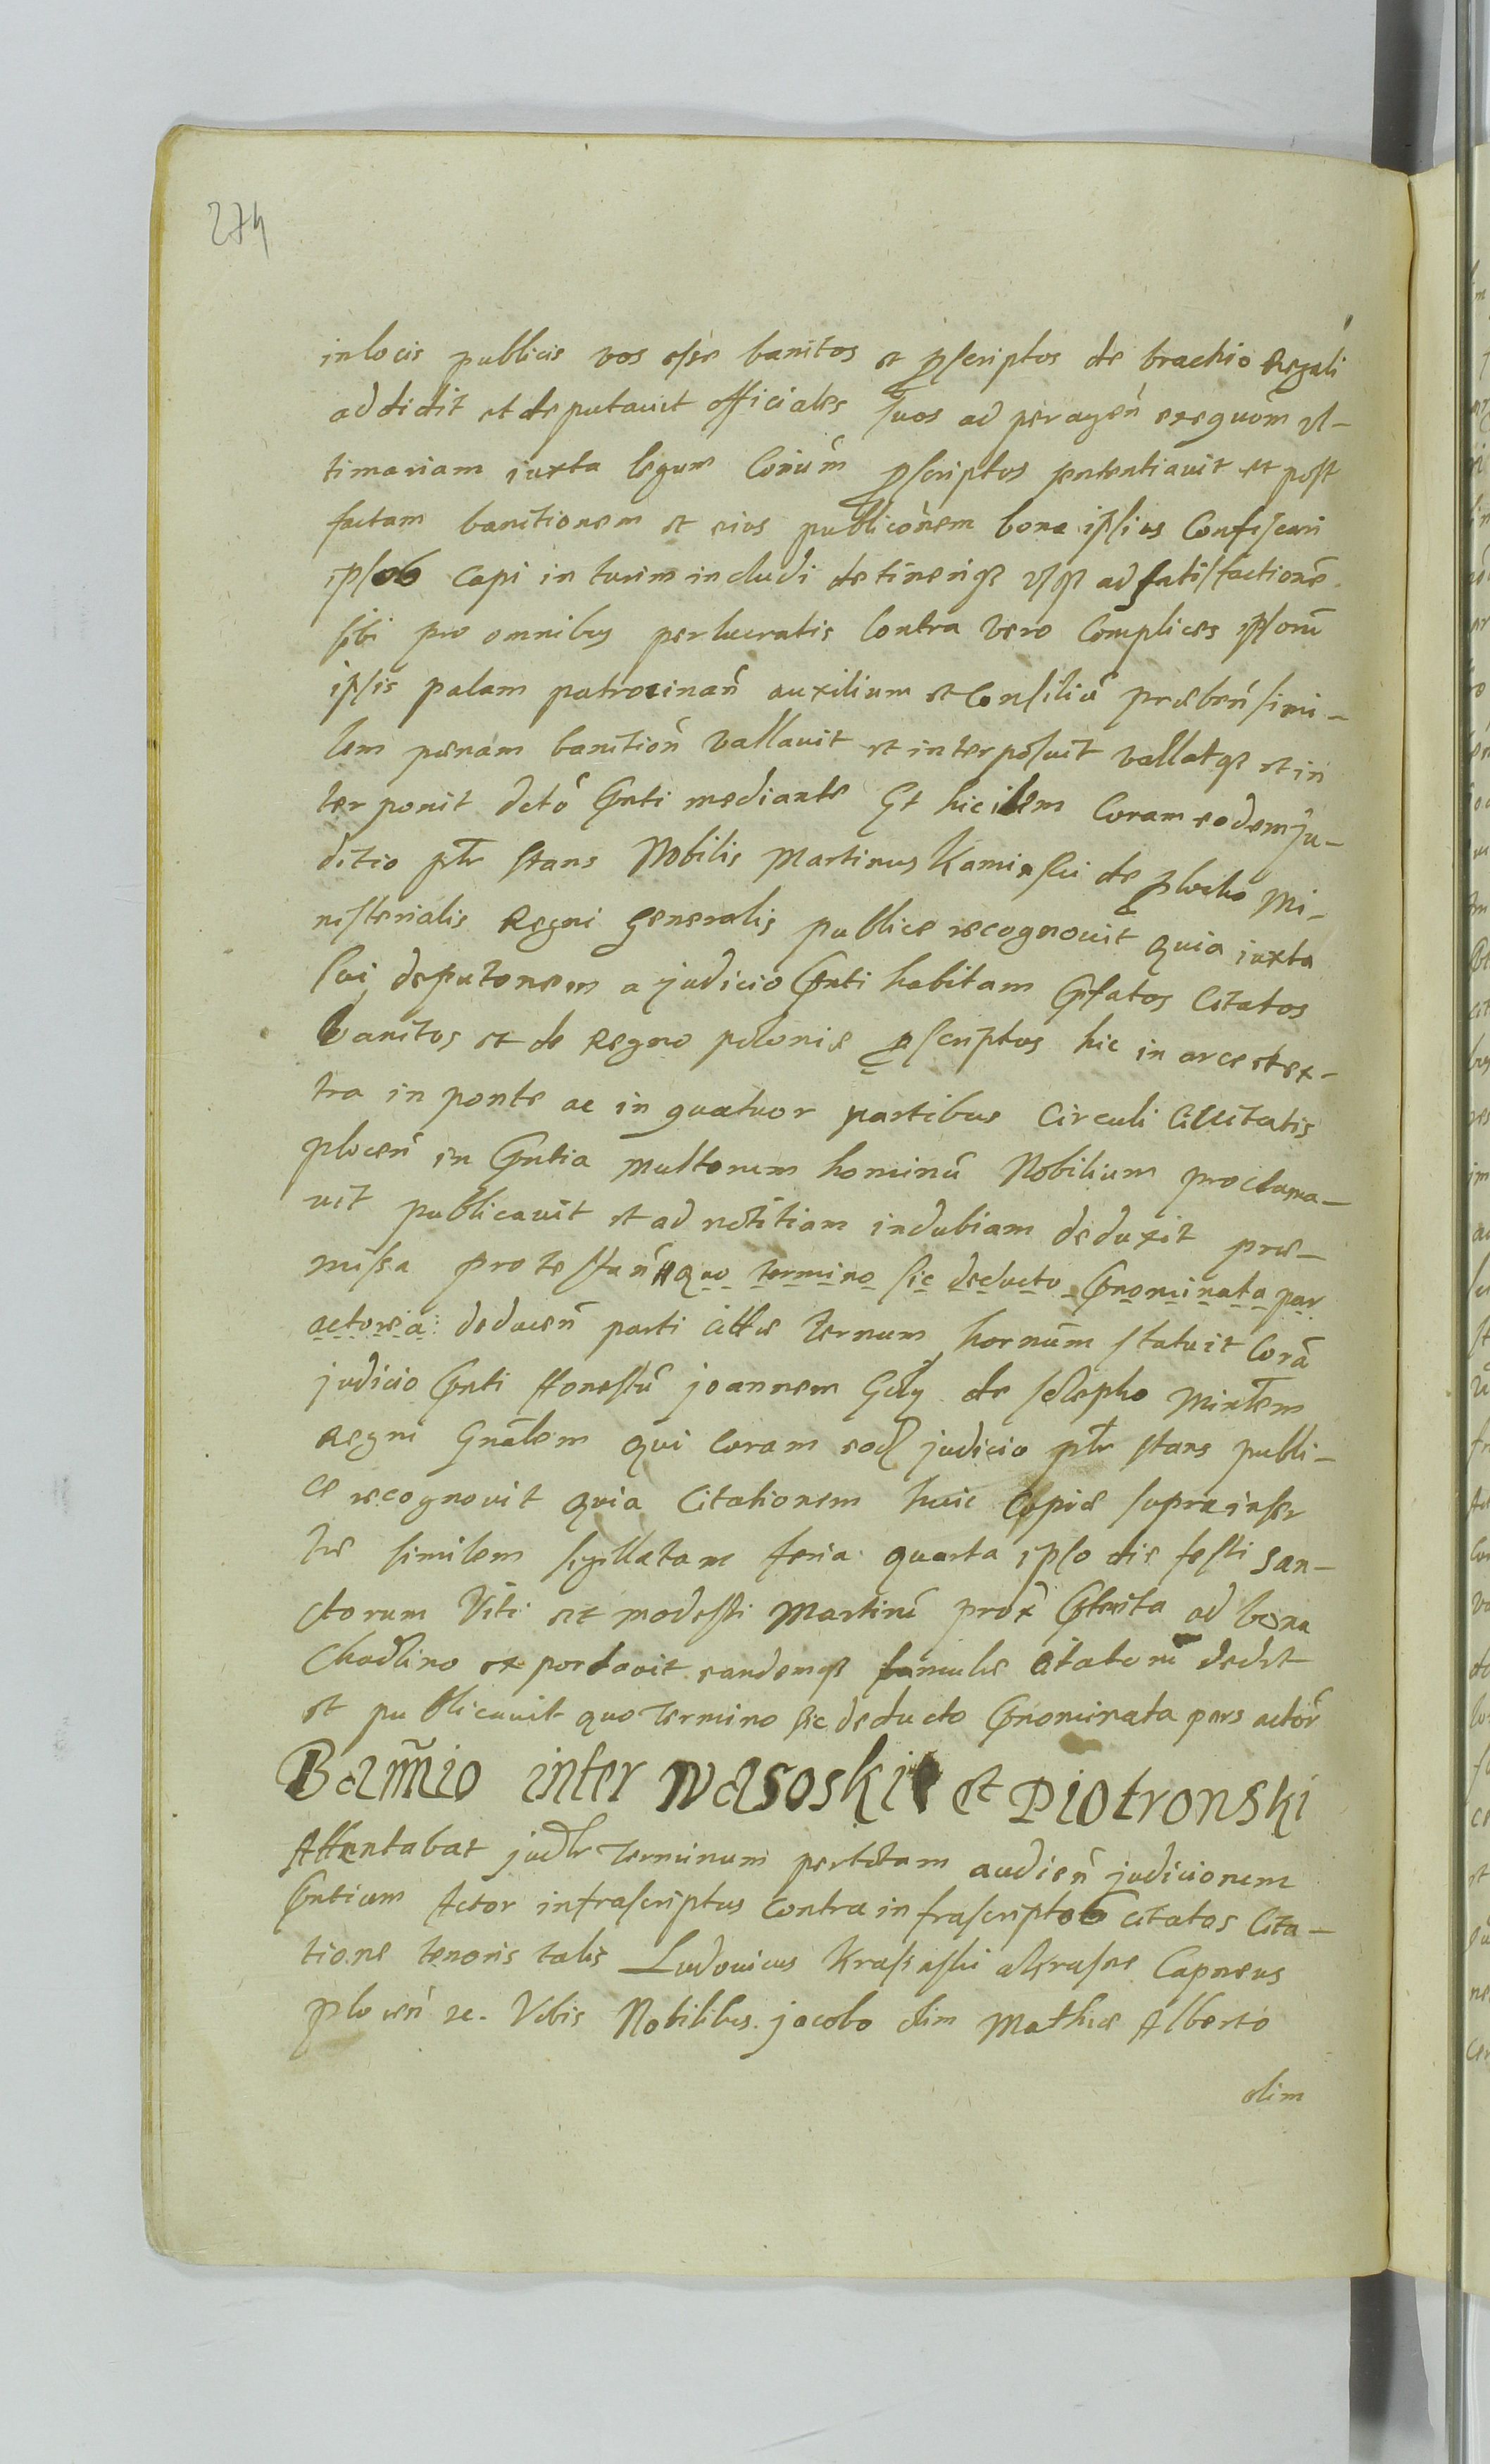 274
in locis publicis vos esse banitos et ꝓscriptos de brachio Regali
addidit et deputavit officiales suos ad peragen̄ exequom̄ ul-
timariam iuxta legum Coniūm ꝓscriptos sententiavit et post
factam banitionem et eius publicoñem bona ipsius Confiscari
ipsos capi in turim includi detinerique usque ad satisfactionē
sibi pro omnibus perlucratis Contra vero Complices ipsorū
ipsis palam patrocinan̄ auxilium et Consiliū præben̄ simi-
lem pænam banition̄ vallavit et interposuit vallatque et in
terponit dctō Gnti mediante Et hic idem Coram eodem Ju-
ditio ptr stans Nobilis Martinus Kamiński de Plocko Mi-
nisterialis Regni Generalis publice recognovit quia iuxta
sui deputonem a judicio Gnti habitam Gfatos Citatos
banitos et de Regno poloniæ ꝓscriptos hic in arce et ex-
tra in ponte ac in quatuor partibus Circuli Civitatis
plocen̄ in Gntia multorum hominū Nobilium proclama-
vit publicavit et ad notitiam indubiam deduxit præ-
missa protestan̄ quo termino sic deducto Gnominata par
actorea deducen̄ parti Cittæ ternum hornūm statuit Corā
judicio Gnti Honestū joannem Goly de selepho Minlem
Regni Gnalem qui Coram eod judicio ptr stans publi-
ce recognovit quia Citationem huic Copiæ supra inser
tæ similem sigillatam feria quarta ipso die festi san-
ctorum Viti et modesti Martirū prox̄ Gterita ad bona
Chodlino exportavit eandemque famulæ Citatorū dedit
et publicavit quo termino sic deducto Gnominata pars actor̄
Bannio inter Wasoskie et Piotronski
Attentabat judlr terminum pertotam audien̄ judicionem
Gntium Actor infrascriptus Contra infrascriptos Citatos Cita-
tione tenoris talis Ludovicus Krassinski a Krasne Capneus
plocen̄ etc. Vobis Nobilibus jacobo olim Mathiæ Alberto
olim